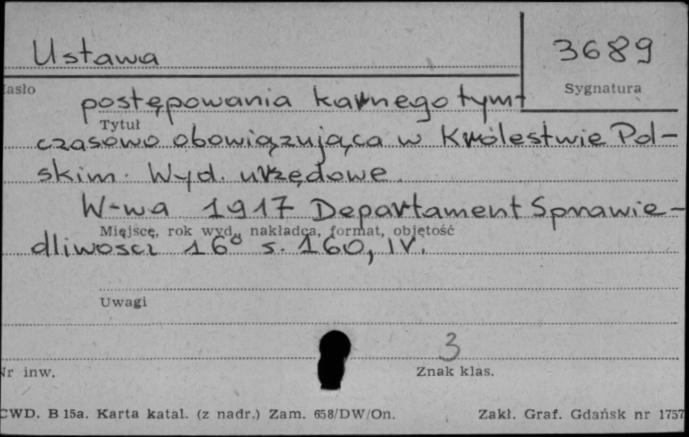 Ustawa
3689
Hasło
Sygnatura
postępowania karnego tym-
Tytuł
czasowo obowiązująca w Królestwie Pol-
skim. Wyd. urzędowe.
W-wa 1917 Departament Sprawie-
Miejsce, rok wyd., nakładca, format, objętość
dliwości 16° s. 160, IV.
Uwagi
3
Nr inw.
Znak klas.
CWD. B 15a. Karta katal. (z nadr.) Zam. 658/DW/On.
Zakł. Graf. Gdańsk nr 1757